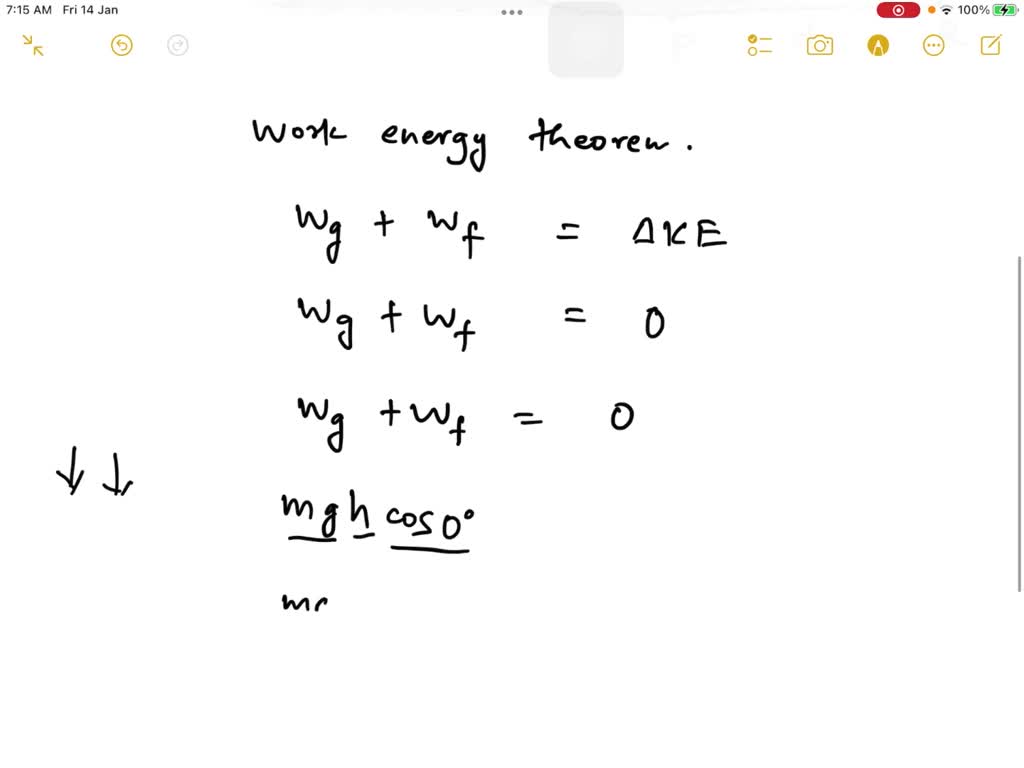 7:15 AM Fri 14 Jan
100%
Work energy theorem.
Wg + Wf = ΔKE
Wg + Wf = 0
Wg + Wf = 0
mgh cos 0°